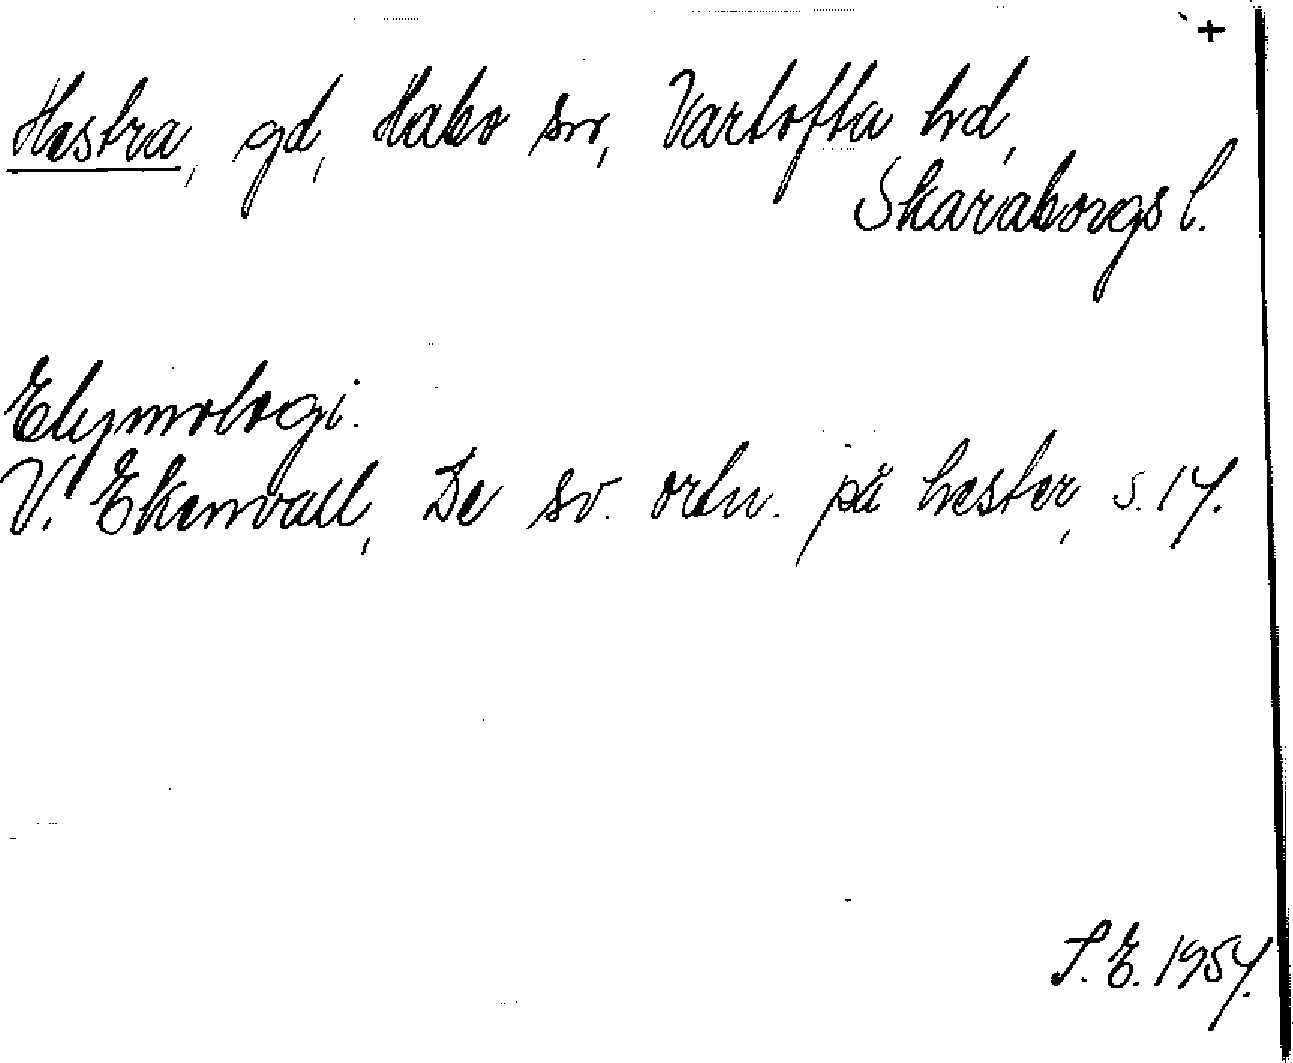 +
Hestra, gd, Habo sn, Vartofta hd,
Skaraborgs l.
Etymologi.
V. Ekenvall, De sv. ortn. på hester, s. 17.
S.E. 1957.